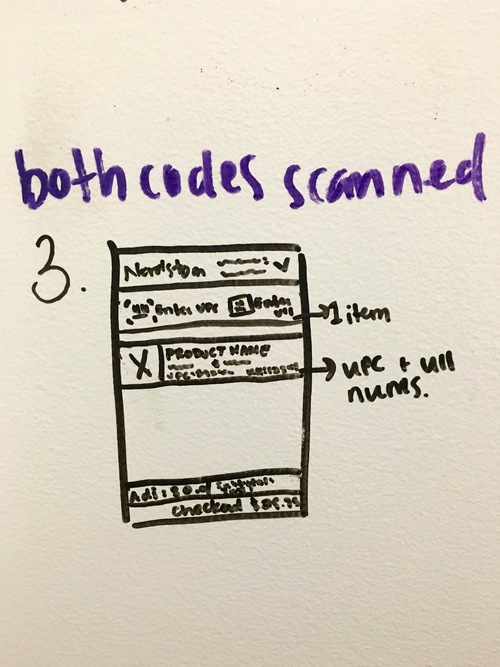 both codes scanned
3.
Nordstom
Enter UPC Enter
→ 1 item
X PRODUCT NAME
UPC
→ UPC + UII
nums.
Adj: $0.0
checkout